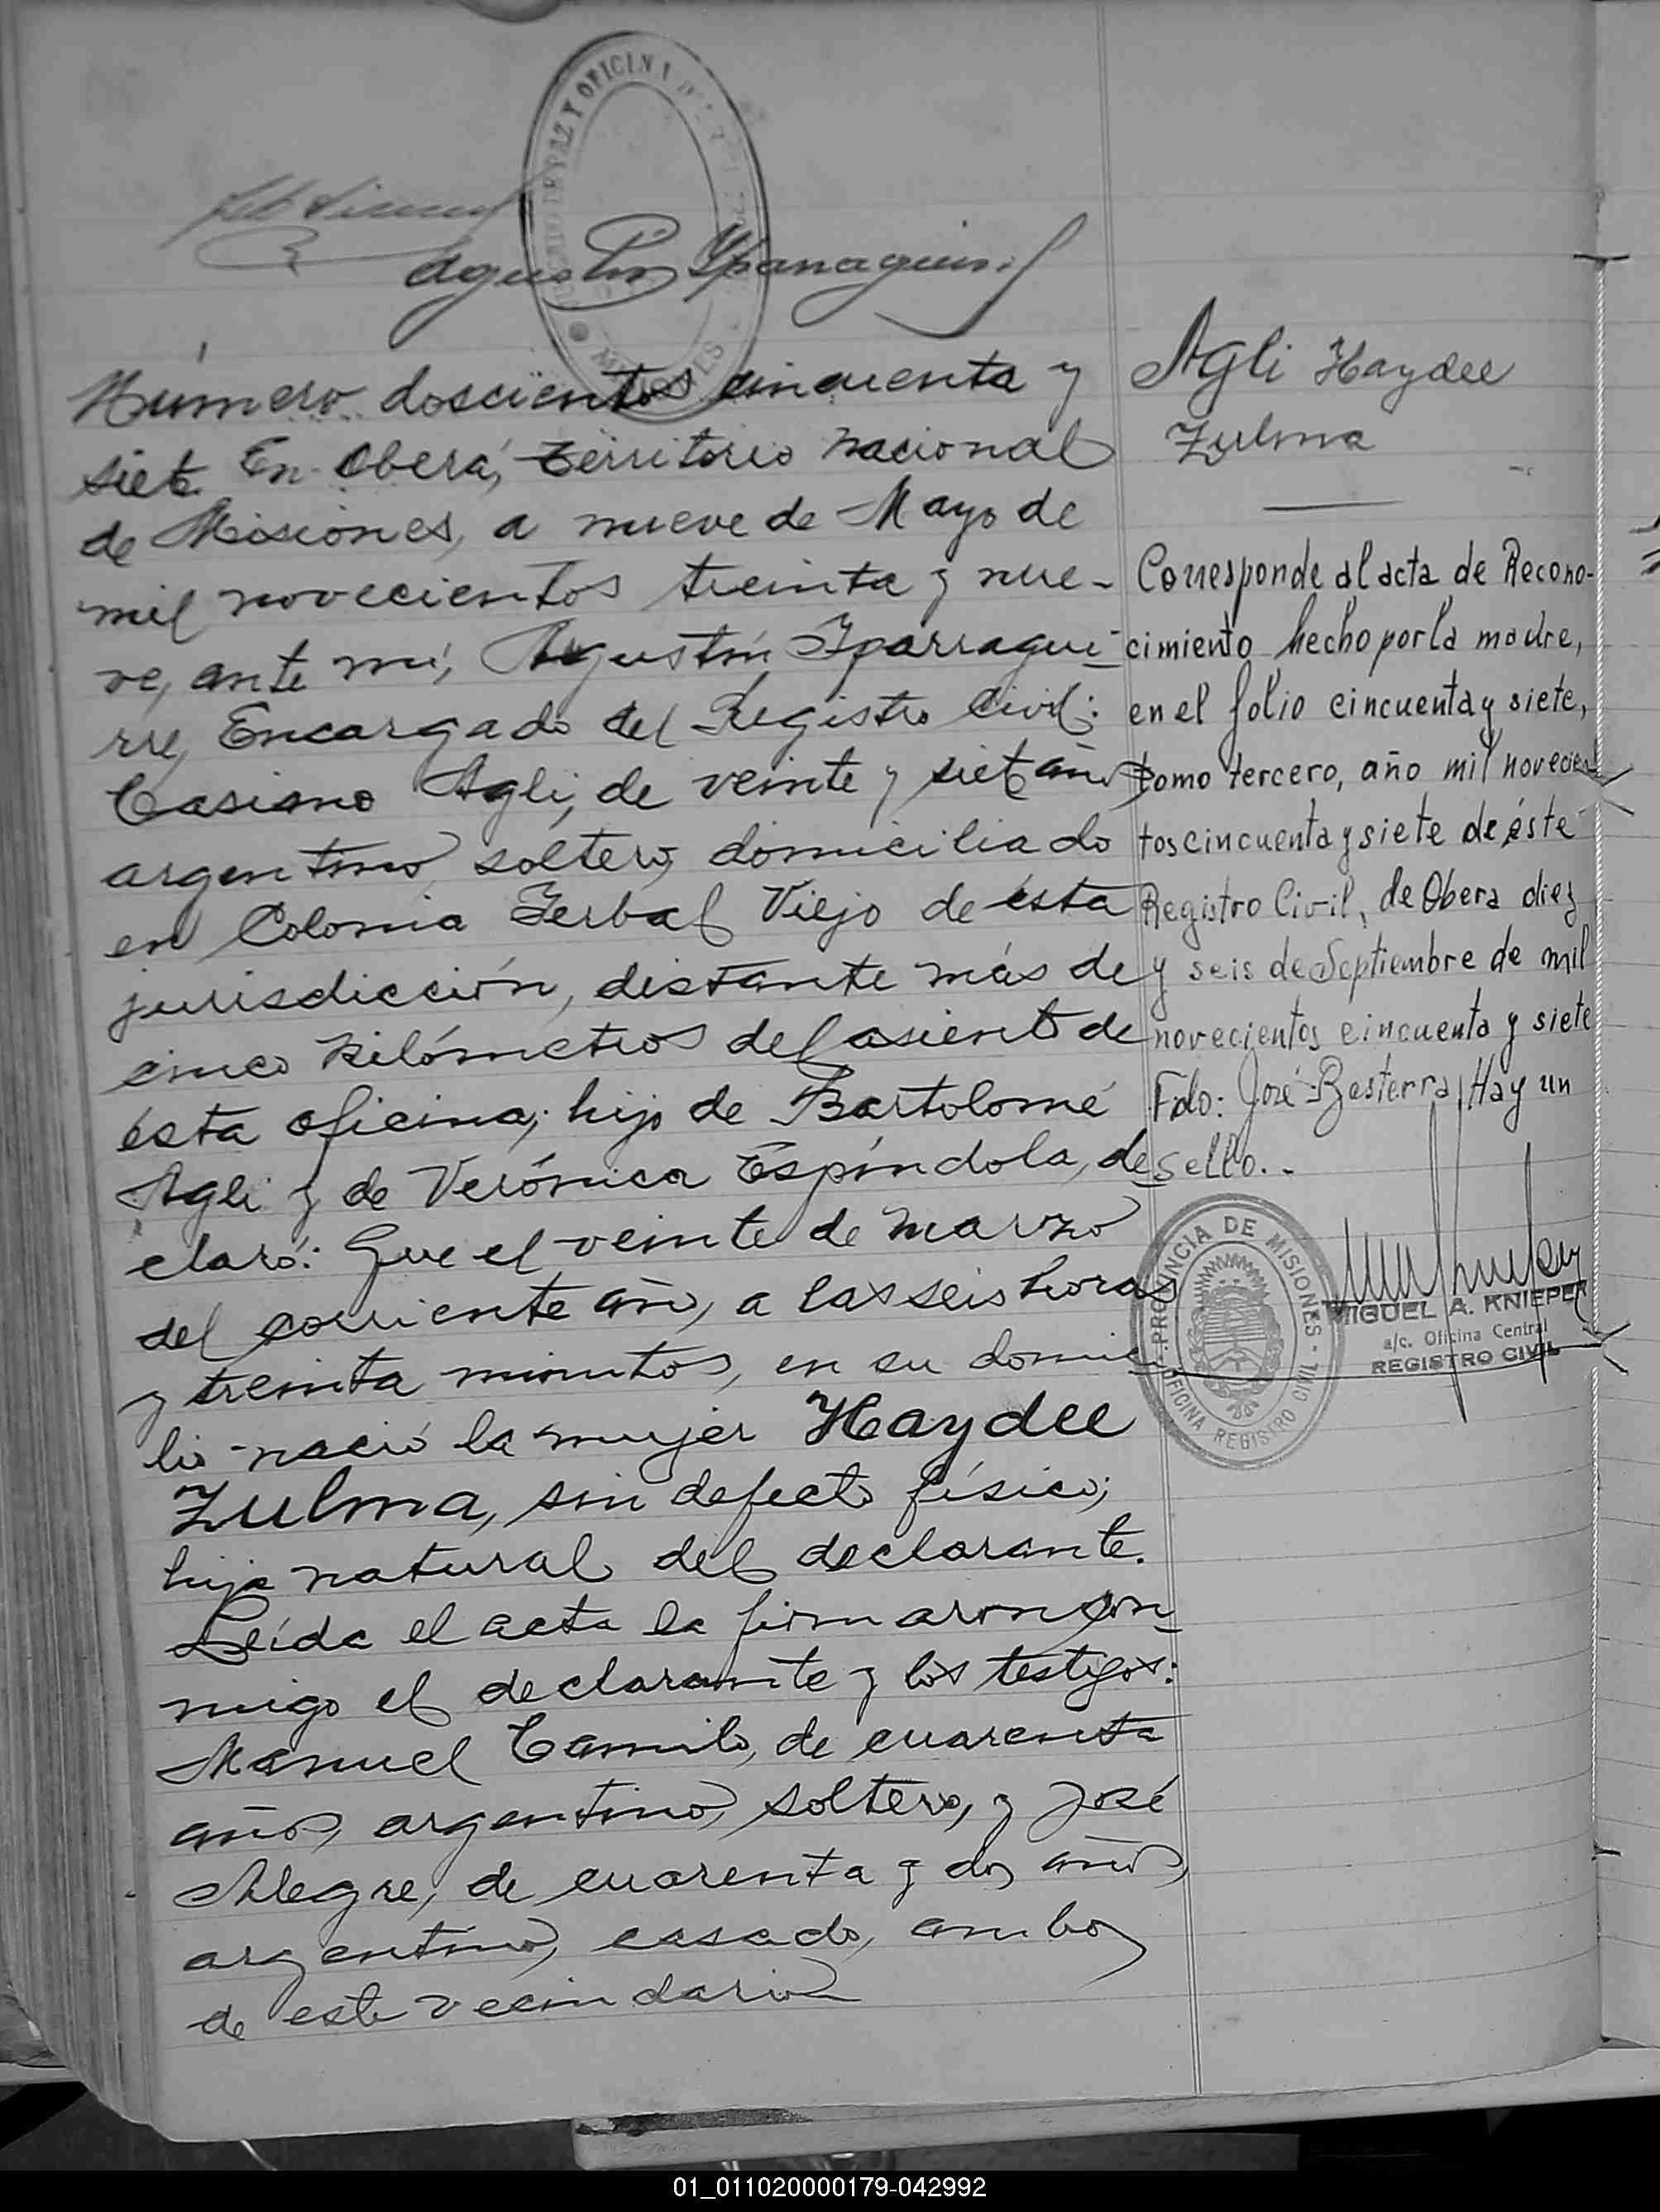 Agustín Yparraguirre
Número doscientos cincuenta y
siete. En Oberá, territorio nacional
de Misiones, a nueve de Mayo de
mil novecientos treinta y nue-
ve, ante mí, Agustín Yparragui-
rre, Encargado del Registro Civil:
Casiano Agli, de veinte y siete años,
argentino, soltero, domiciliado
en Colonia Yerbal Viejo de ésta
jurisdicción, distante más de
cinco kilómetros del asiento de
ésta oficina; hijo de Bartolomé
Agli y de Verónica Espíndola, de
claró: Que el veinte de marzo
del corriente año, a las seis horas
y treinta minutos, en su domici
lio nació la mujer Haydee
Zulma, sin defecto físico;
hija natural del declarante.
Leída el acta la firmaron con-
migo el declarante y los testigos:
Manuel Camilo, de cuarenta
años, argentino, soltero, y José
Alegre, de cuarenta y dos años,
argentino, casado, ambos
de este vecindario
Agli Haydee
Zulma
Corresponde al acta de Recono-
cimiento hecho por la madre,
en el folio cincuenta y siete,
tomo tercero, año mil novecien
tos cincuenta y siete de éste
Registro Civil, de Obera diez
y seis de Septiembre de mil
novecientos cincuenta y siete
Fdo: José Basterra, Hay un
sello..
PROVINCIA DE MISIONES
OFICINA REGISTRO CIVIL
MIGUEL A. KNIEPER
a/c. Oficina Central
REGISTRO CIVIL
01_011020000179-042992